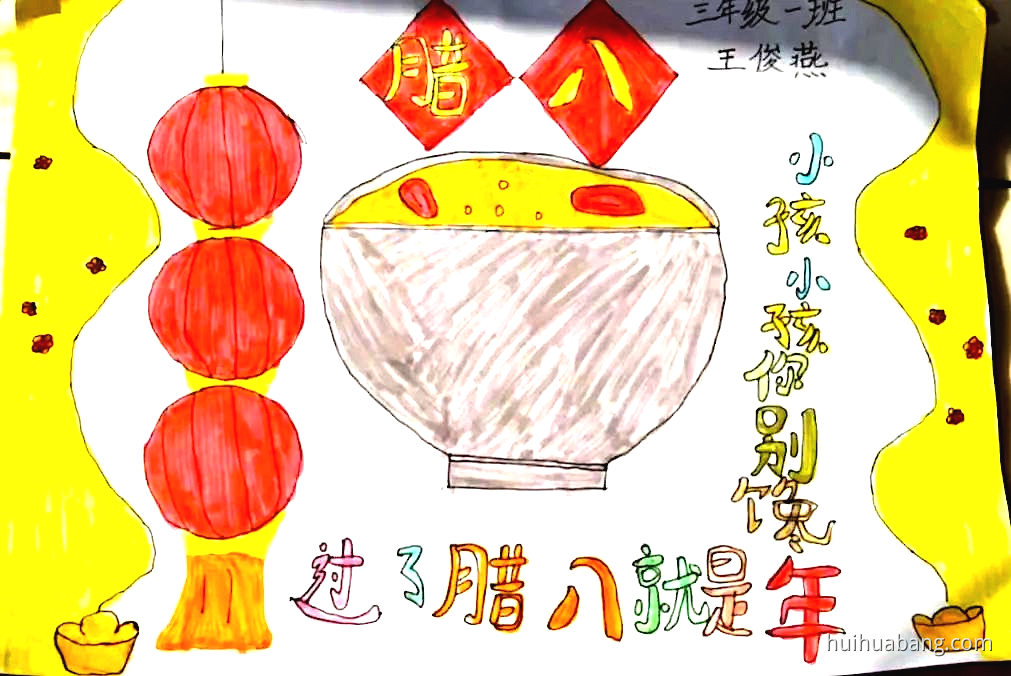 腊八
三年级一班
王俊燕
小孩小孩你别馋
过了腊八就是年
huihuabang.com